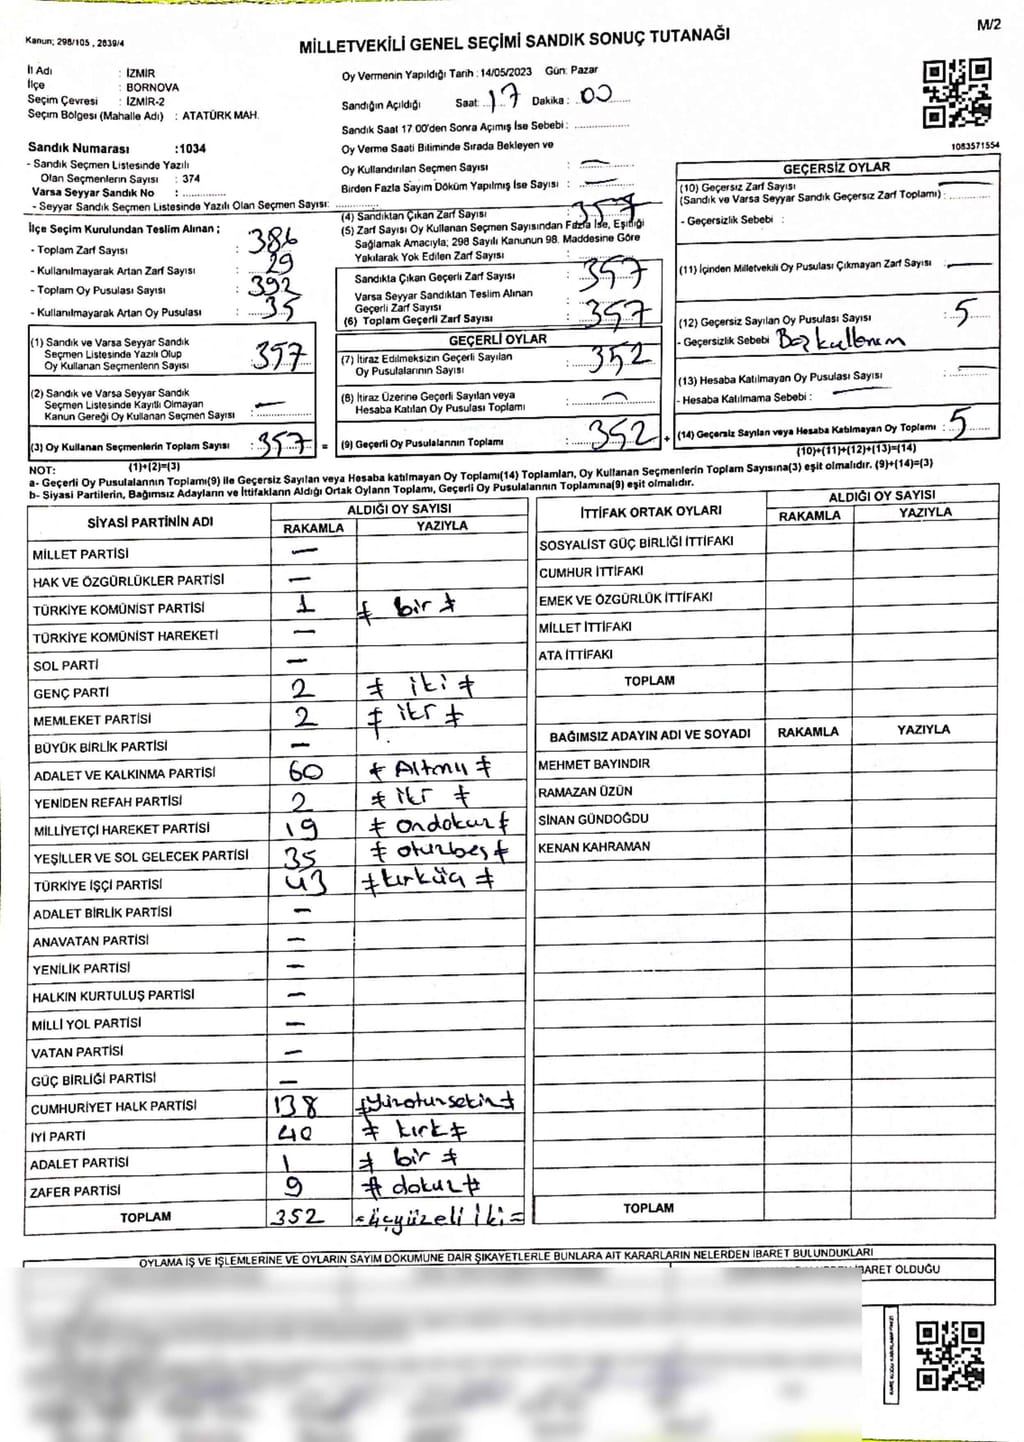 Kanun; 298/105 , 2839/4
MİLLETVEKİLİ GENEL SEÇİMİ SANDIK SONUÇ TUTANAĞI
M/2
İl Adı : İZMİR
İlçe : BORNOVA
Seçim Çevresi : İZMİR-2
Seçim Bölgesi (Mahalle Adı) : ATATÜRK MAH.
Sandık Numarası :1034
- Sandık Seçmen Listesinde Yazılı
Olan Seçmenlerin Sayısı : 374
Varsa Seyyar Sandık No :
- Seyyar Sandık Seçmen Listesinde Yazılı Olan Seçmen Sayısı:
Oy Vermenin Yapıldığı Tarih : 14/05/2023 Gün: Pazar
Sandığın Açıldığı Saat: 17 Dakika : 00
Sandık Saat 17.00'den Sonra Açımış İse Sebebi :
Oy Verme Saati Bitiminde Sırada Bekleyen ve
Oy Kullandırılan Seçmen Sayısı : —
Birden Fazla Sayım Döküm Yapılmış İse Sayısı : —
1083571554
İlçe Seçim Kurulundan Teslim Alınan ;
- Toplam Zarf Sayısı : 386
- Kullanılmayarak Artan Zarf Sayısı : 29
- Toplam Oy Pusulası Sayısı : 392
- Kullanılmayarak Artan Oy Pusulası : 35
(1) Sandık ve Varsa Seyyar Sandık
Seçmen Listesinde Yazılı Olup
Oy Kullanan Seçmenlerin Sayısı : 357
(2) Sandık ve Varsa Seyyar Sandık
Seçmen Listesinde Kayıtlı Olmayan
Kanun Gereği Oy Kullanan Seçmen Sayısı : —
(3) Oy Kullanan Seçmenlerin Toplam Sayısı : 357 =
(1)+(2)=(3)
(4) Sandıktan Çıkan Zarf Sayısı : 357
(5) Zarf Sayısı Oy Kullanan Seçmen Sayısından Fazla İse, Eşitliği
Sağlamak Amacıyla; 298 Sayılı Kanunun 98. Maddesine Göre
Yakılarak Yok Edilen Zarf Sayısı :
Sandıkta Çıkan Geçerli Zarf Sayısı : 357
Varsa Seyyar Sandıktan Teslim Alınan
Geçerli Zarf Sayısı :
(6) Toplam Geçerli Zarf Sayısı : 357
GEÇERLİ OYLAR
(7) İtiraz Edilmeksizin Geçerli Sayılan
Oy Pusulalarının Sayısı : 352
(8) İtiraz Üzerine Geçerli Sayılan veya
Hesaba Katılan Oy Pusulası Toplamı : —
(9) Geçerli Oy Pusulalarının Toplamı : 352 +
GEÇERSİZ OYLAR
(10) Geçersiz Zarf Sayısı —
(Sandık ve Varsa Seyyar Sandık Geçersiz Zarf Toplamı) :
- Geçersizlik Sebebi :
(11) İçinden Milletvekili Oy Pusulası Çıkmayan Zarf Sayısı : —
(12) Geçersiz Sayılan Oy Pusulası Sayısı : 5
- Geçersizlik Sebebi
(13) Hesaba Katılmayan Oy Pusulası Sayısı : —
- Hesaba Katılmama Sebebi : —
(14) Geçersiz Sayılan veya Hesaba Katılmayan Oy Toplamı : 5
(10)+(11)+(12)+(13)=(14)
NOT:
a- Geçerli Oy Pusulalarının Toplamı(9) ile Geçersiz Sayılan veya Hesaba katılmayan Oy Toplamı(14) Toplamları, Oy Kullanan Seçmenlerin Toplam Sayısına(3) eşit olmalıdır. (9)+(14)=(3)
b- Siyasi Partilerin, Bağımsız Adayların ve İttifakların Aldığı Ortak Oyların Toplamı, Geçerli Oy Pusulalarının Toplamına(9) eşit olmalıdır.
SİYASİ PARTİNİN ADI ALDIĞI OY SAYISI
RAKAMLA YAZIYLA
MİLLET PARTİSİ —
HAK VE ÖZGÜRLÜKLER PARTİSİ —
TÜRKİYE KOMÜNİST PARTİSİ 1 ≠ bir ≠
TÜRKİYE KOMÜNİST HAREKETİ —
SOL PARTİ —
GENÇ PARTİ 2 ≠ iki ≠
MEMLEKET PARTİSİ 2 ≠ iki ≠
BÜYÜK BİRLİK PARTİSİ —
ADALET VE KALKINMA PARTİSİ 60 ≠ Altmış ≠
YENİDEN REFAH PARTİSİ 2 ≠ iki ≠
MİLLİYETÇİ HAREKET PARTİSİ 19 ≠ ondokuz ≠
YEŞİLLER VE SOL GELECEK PARTİSİ 35 ≠ oturbeş ≠
TÜRKİYE İŞÇİ PARTİSİ 43 ≠ kırküç ≠
ADALET BİRLİK PARTİSİ —
ANAVATAN PARTİSİ —
YENİLİK PARTİSİ —
HALKIN KURTULUŞ PARTİSİ —
MİLLİ YOL PARTİSİ —
VATAN PARTİSİ —
GÜÇ BİRLİĞİ PARTİSİ —
CUMHURİYET HALK PARTİSİ 138
İYİ PARTİ 40 ≠ kırk ≠
ADALET PARTİSİ 1 ≠ bir ≠
ZAFER PARTİSİ 9 ≠ dokuz ≠
TOPLAM 352 = üçyüzelli iki =
İTTİFAK ORTAK OYLARI ALDIĞI OY SAYISI
RAKAMLA YAZIYLA
SOSYALİST GÜÇ BİRLİĞİ İTTİFAKI
CUMHUR İTTİFAKI
EMEK VE ÖZGÜRLÜK İTTİFAKI
MİLLET İTTİFAKI
ATA İTTİFAKI
TOPLAM
BAĞIMSIZ ADAYIN ADI VE SOYADI RAKAMLA YAZIYLA
MEHMET BAYINDIR
RAMAZAN ÜZÜN
SİNAN GÜNDOĞDU
KENAN KAHRAMAN
TOPLAM
OYLAMA İŞ VE İŞLEMLERİNE VE OYLARIN SAYIM DÖKÜMÜNE DAİR ŞİKAYETLERLE BUNLARA AİT KARARLARIN NELERDEN İBARET BULUNDUKLARI
İBARET OLDUĞU